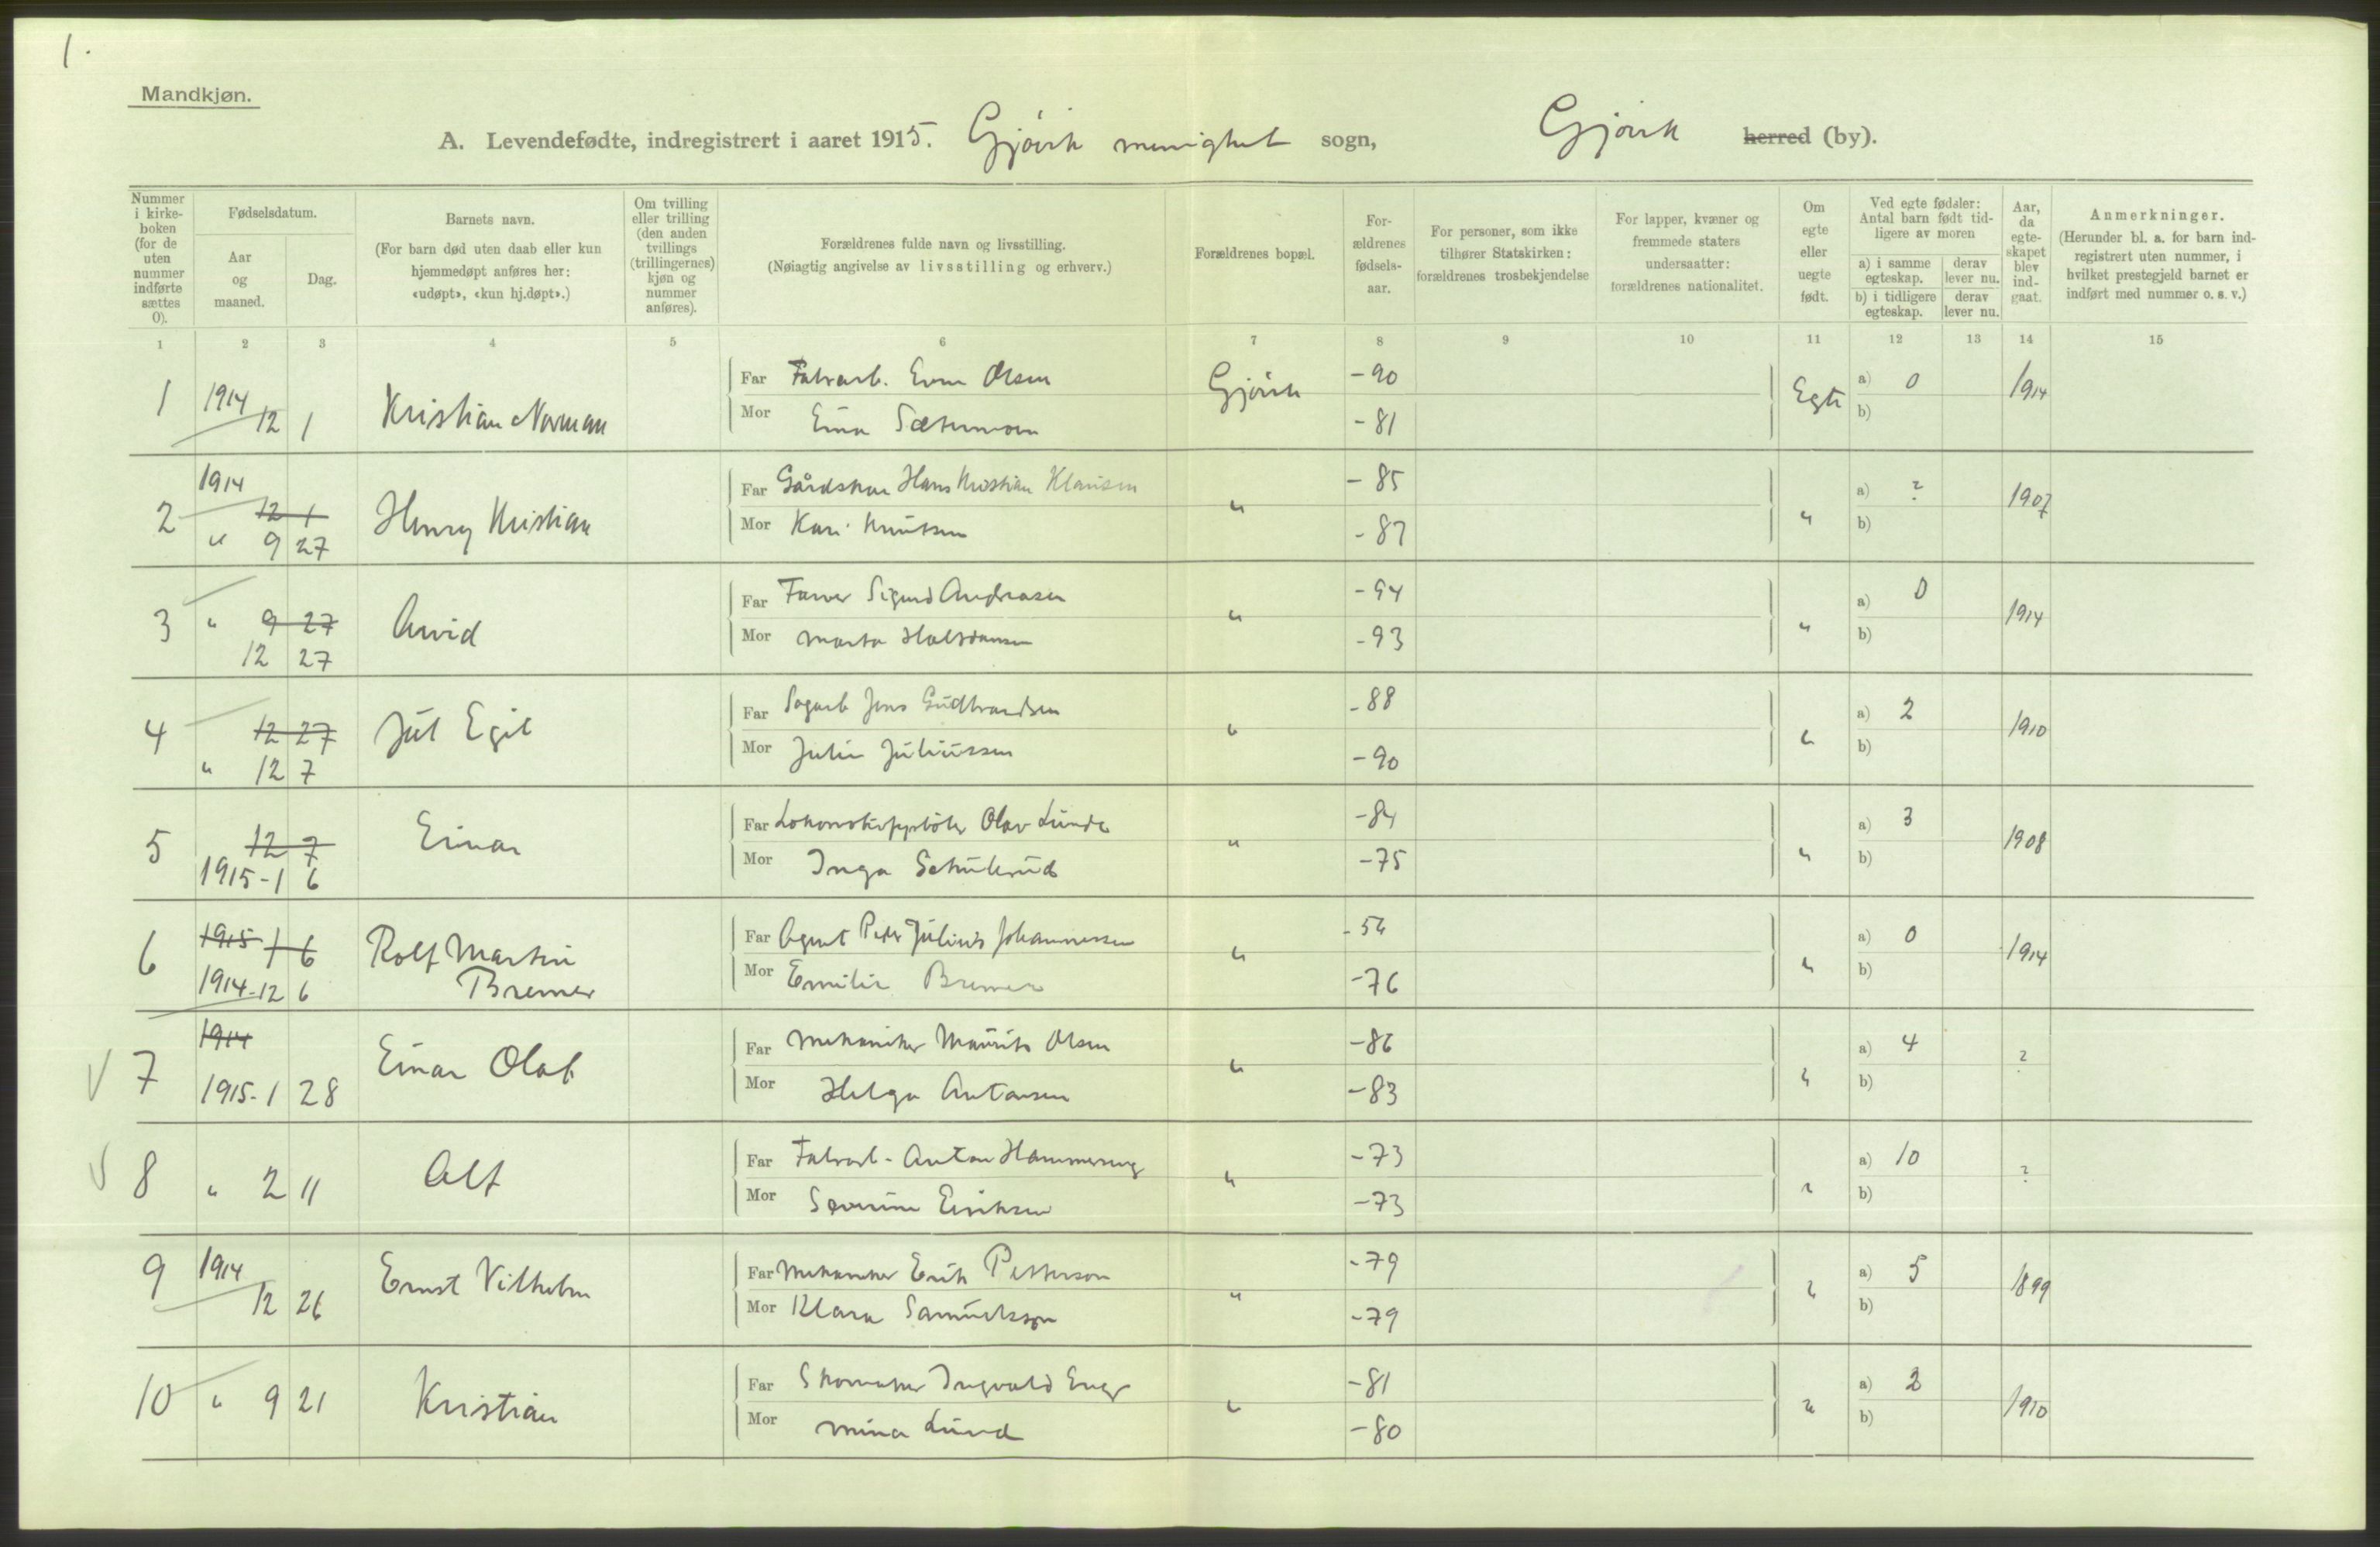 1.
Mandkjøn.
A. Levendefødte, indregistrert i aaret 1915. Gjövik menighet sogn, Gjövik herred (by).
Nummer i kirkeboken (for de uten nummer indførte sættes 0).
Fødselsdatum.
Aar og maaned.
Dag.
Barnets navn.
(For barn død uten daab eller kun hjemmedøpt anføres her: «udøpt», «kun hj.døpt».)
Om tvilling eller trilling (den anden tvillings (trillingernes) kjøn og nummer anføres).
Forældrenes fulde navn og livsstilling.
(Nøiagtig angivelse av livsstilling og erhverv.)
Forældrenes bopæl.
Forældrenes fødselsaar.
For personer, som ikke tilhører Statskirken: forældrenes trosbekjendelse
For lapper, kvæner og fremmede staters undersaatter: forældrenes nationalitet.
Om egte eller uegte født.
Ved egte fødsler: Antal barn født tidligere av moren
a) i samme egteskap.
derav lever nu.
b) i tidligere egteskap.
derav lever nu.
Aar, da egteskapet blev indgaat.
Anmerkninger.
(Herunder bl. a. for barn indregistrert uten nummer, i hvilket prestegjeld barnet er indført med nummer o. s. v.)
1 2 3 4 5 6 7 8 9 10 11 12 13 14 15
1 1914 12 1 Kristian Norman Far Fabrarb. Olsen Gjövik -90 Egte a) 0 1914
Mor -81 b)
2 1914 12 1 Henry Kristian Far Hans Kristian Klausen " -85 " a) ? 1907
" 9 27 Mor Kari Knutsen -87 b)
3 " 9 27 Arvid Far Farver Sigurd Andreasen " -94 " a) 0 1914
12 27 Mor Marta Halvdansen -93 b)
4 12 27 Jul Egil Far Sagarb Jens Gudbrandsen " -88 " a) 2 1910
" 12 7 Mor Julie Juliussen -90 b)
5 12 7 Einar Far Olav Lunde " -84 " a) 3 1908
1915-1 6 Mor Inga Schulerud -75 b)
6 1915 1 6 Rolf Martin Far Agent Peder Julius Johannessen " -54 " a) 0 1914
1914-12 6 Bremer Mor Emilie Bremer -76 b)
7 1914 Einar Olaf Far Mekaniker Maurits Olsen " -86 " a) 4 ?
1915-1 28 Mor Helga Antonsen -83 b)
8 " 2 11 Alf Far Fabrarb. Anton " -73 " a) 10 ?
Mor Severine Eriksen -73 b)
9 1914 12 26 Ernst Vilhelm Far Mekaniker Erik Petterson " -79 " a) 5 1899
Mor Klara Samuelsson -79 b)
10 " 9 21 Kristian Far Skomaker Ingvald " -81 " a) 2 1910
Mor Mina Lund -80 b)